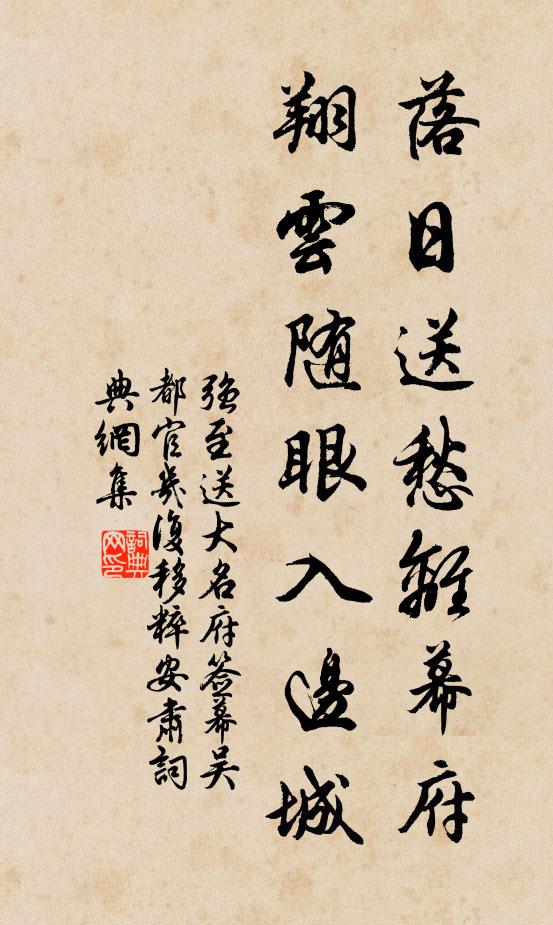 落日送愁離幕府
翔雲随眼入邊城
強至送大名府簽幕吳
都官幾復移粹安肅詞
典網集
詞典
网印